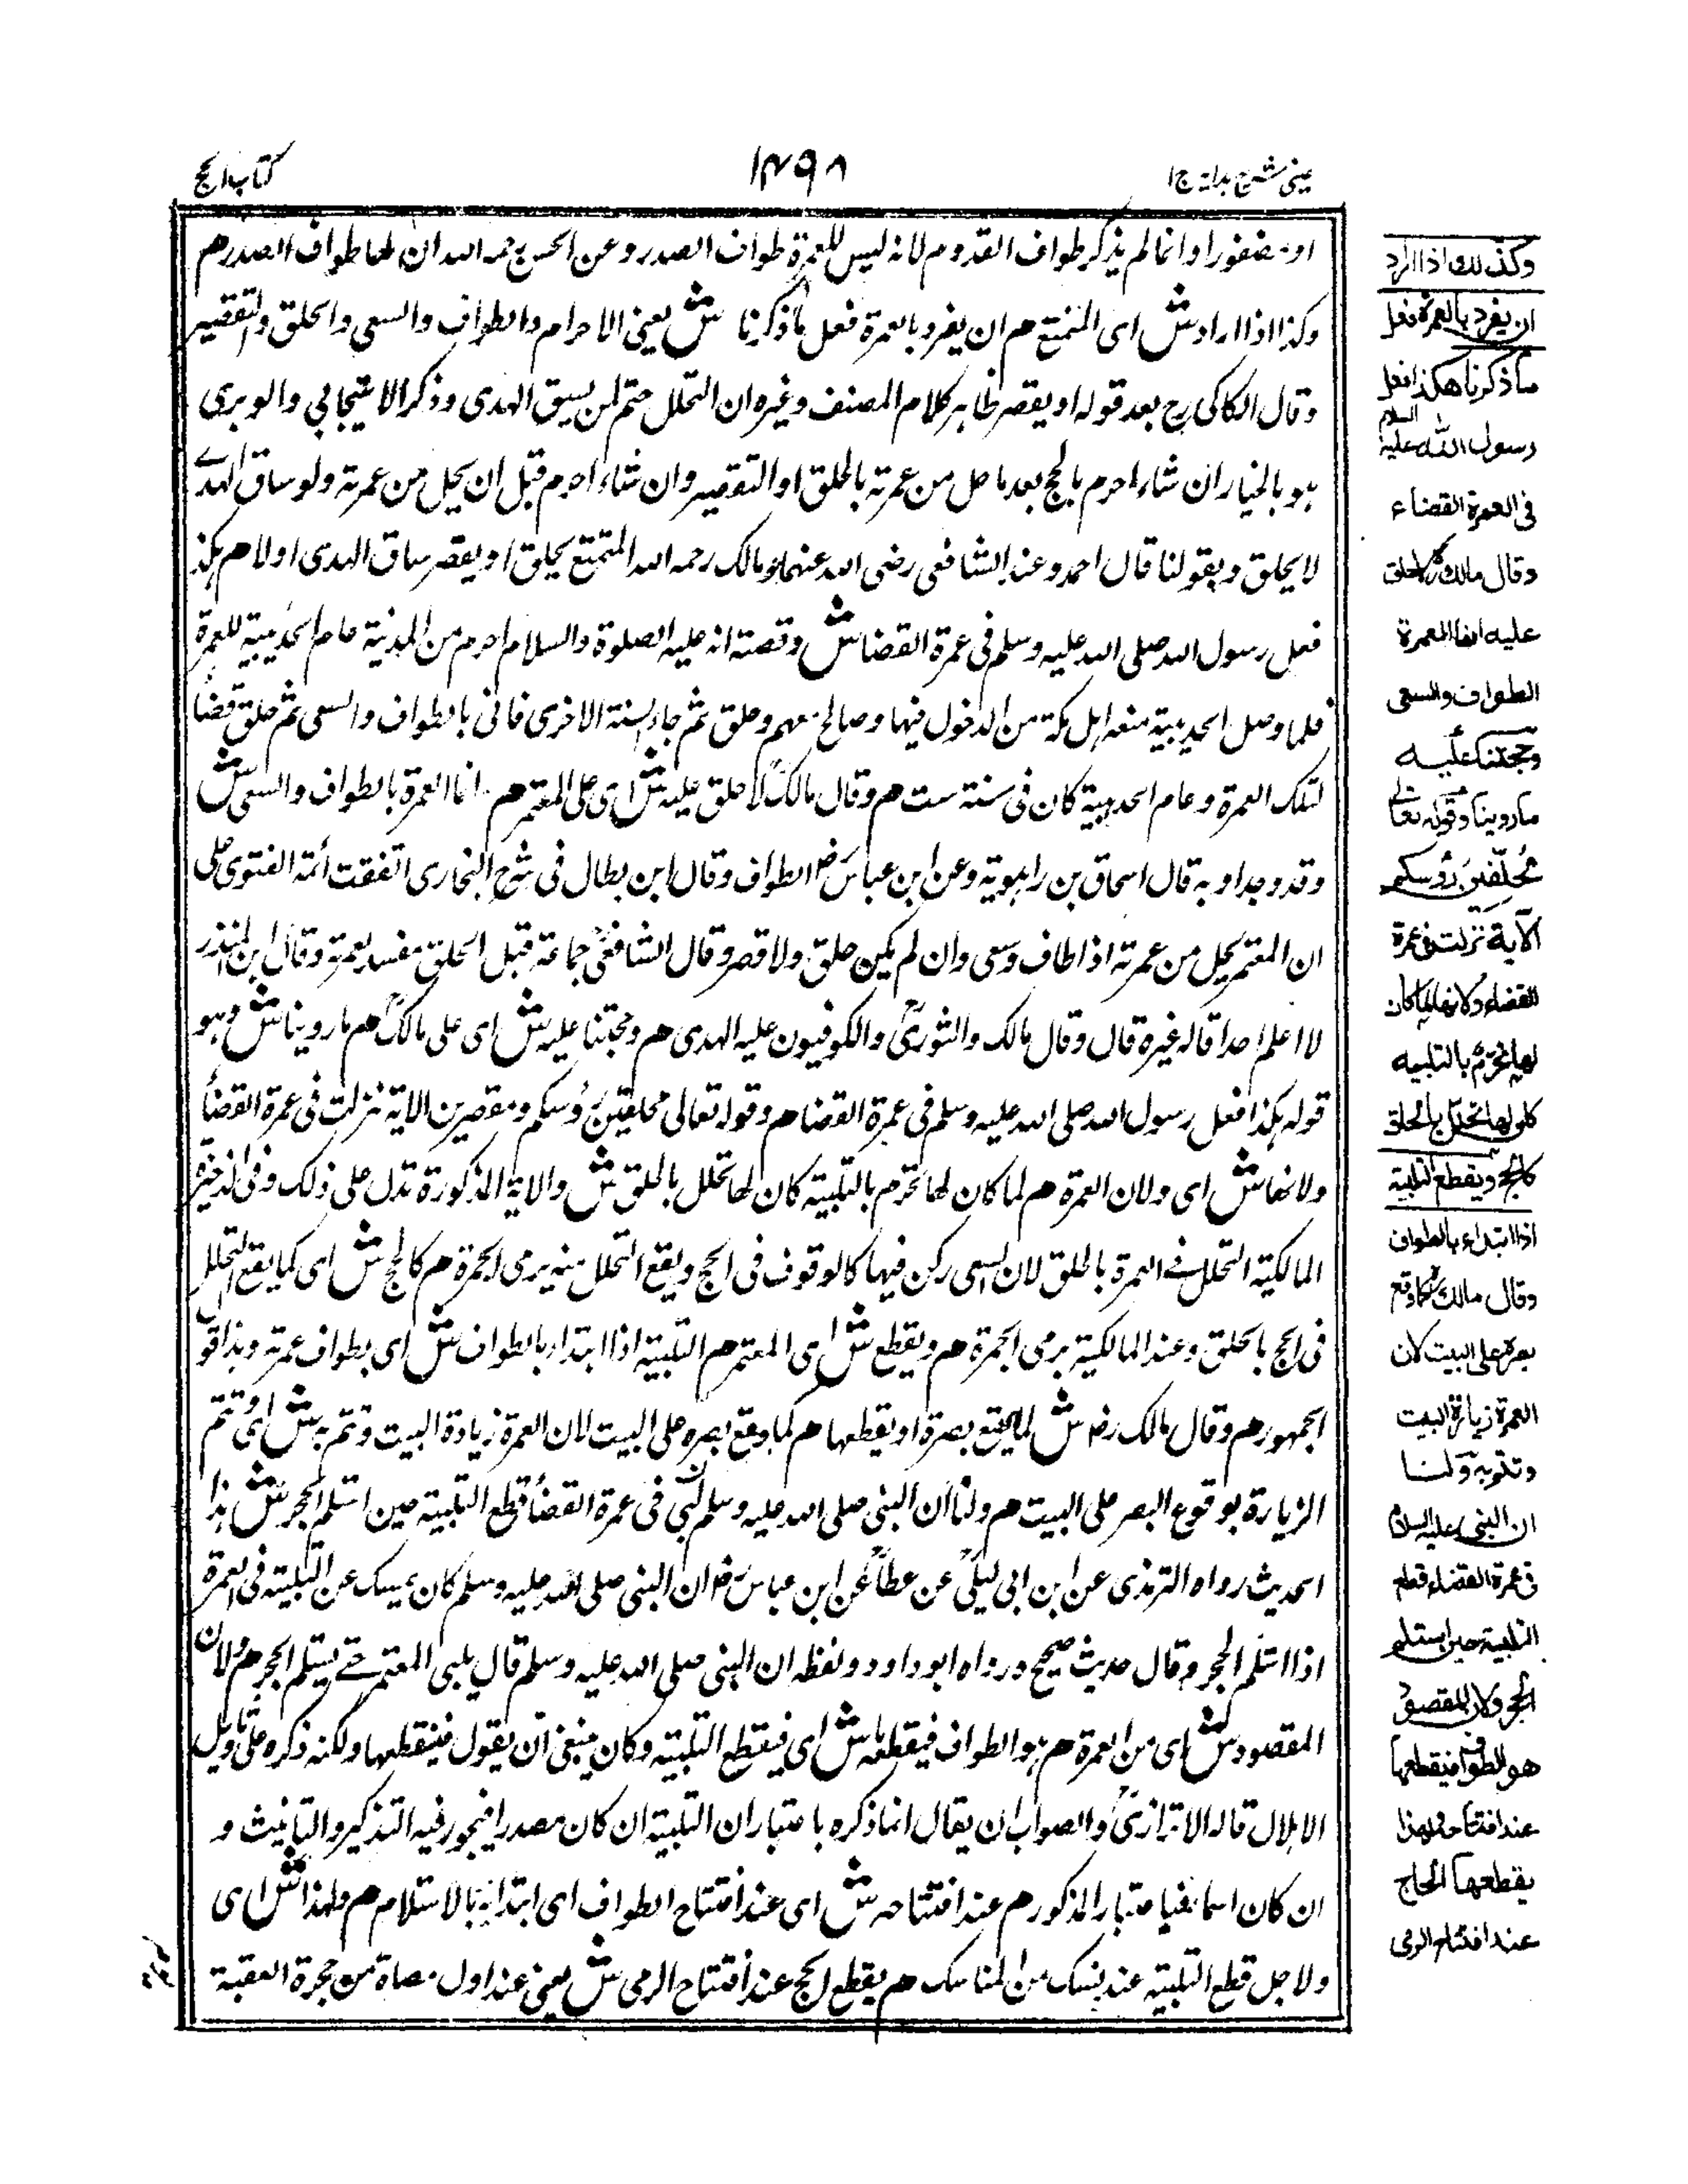 عینی شرح ہدایہ ج۱
۱۴۹۸
کتاب الحج
او مضفورا وانما لم یذکر طواف القدوم لانہ لیس للعمرۃ طواف الصدر وعن الحسن رحمہ اللہ ان لھا طواف الصدر م
وکذا اذا اراد ش ای المتمتع م ان یفرد بالعمرۃ فعل ما ذکرنا ش یعنی الاحرام والطواف والسعی والحلق والتقصیر
وقال الکاکی رح بعد قولہ او یقصر ظاہر کلام المصنف وغیرہ ان التحلل حتم لمن لم یسق الہدی وذکر الاسبیجابی والوبری
ہو بالخیار ان شاء احرم بالحج بعد ما حل من عمرتہ بالحلق او التقصیر وان شاء احرم قبل ان یحل من عمرتہ ولو ساق الہدے
لا یحلق وبقولنا قال احمد وعند الشافعی رضی اللہ عنہما ومالک رحمہ اللہ المتمتع یحلق او یقصر ساق الہدی اولا م ہکذ
فعل رسول اللہ صلی اللہ علیہ وسلم فی عمرۃ القضا ش وقصتہ انہ علیہ الصلوۃ والسلام احرم من المدینۃ عام الحدیبیۃ للعمرۃ
فلما وصل الحدیبیۃ منعہ اہل مکۃ من الدخول فیہا وصالح معہم وحلق ثم جاء السنۃ الاخری فاتی بالطواف والسعی ثم حلق قضا
لتلک العمرۃ وعام الحدیبیۃ کان فی سنۃ ست م وقال مالک لا حلق علیہ ش ای علی المعتمر م انما العمرۃ بالطواف والسعی ش
وقد وجدا وبہ قال اسحاق بن راہویہ وعن ابن عباس رض الطواف وقال ابن بطال فی شرح البخاری اتفقت أئمۃ الفتوی علی
ان المعتمر یحل من عمرتہ اذا طاف وسعی وان لم یکن حلق ولا قصر وقال الشافعی جماعۃ قبل الحلق مفسد لعمرتہ وقال ابن المنذر
لا اعلم احدا قالہ غیرہ قال وقال مالک والثوری والکوفیون علیہ الہدی م وحجتنا علیہ ش ای علی مالک م ما روینا ش وہو
قولہ ہکذا فعل رسول اللہ صلی اللہ علیہ وسلم فی عمرۃ القضا م وقولہ تعالی محلقین رؤسکم ومقصرین الایۃ نزلت فی عمرۃ القضأ
ولانھا ش ای ولان العمرۃ م لما کان لھا تحرم بالتلبیۃ کان لھا تحلل بالحلق ش والایۃ المذکورۃ تدل علی ذلک وفی الذخیرۃ
المالکیۃ التحلل فے العمرۃ بالحلق لان السعی رکن فیہا کالوقوف فی الحج ویقع التحلل منہ برمی الجمرۃ م کالحج ش ای کما یقع التحلل
فی الحج بالحلق وعند المالکیۃ برمی الجمرۃ م ویقطع ش ای المعتمر م التلبیۃ اذا ابتدأ بالطواف ش ای بطواف عمرتہ وہذا قول
الجمہور م وقال مالک رض ش کما یقع بصرہ او یقطعہا م کما وقع بصرہ علی البیت لان العمرۃ زیارۃ البیت وتتم بہ ش ای وتتم
الزیارۃ بوقوع البصر علی البیت م ولنا ان النبی صلی اللہ علیہ وسلم لبی فی عمرۃ القضأ قطع التلبیۃ حین استلم الحجر ش ہذا
الحدیث رواہ الترمذی عن ابن ابی لیلی عن عطا عن ابن عباس رض ان النبی صلی اللہ علیہ وسلم کان یمسک عن التلبیۃ فی العمرۃ
اذا استلم الحجر وقال حدیث صحیح ورواہ ابو داود ولفظہ ان النبی صلی اللہ علیہ وسلم قال یلبی المعتمر حتے یستلم الحجر م ولان
المقصود ش ای من العمرۃ م ہو الطواف فیقطعہا ش ای فیقطع التلبیۃ وکان ینبغی ان یقول فیقطعہا ولکنہ ذکرہ علی تاویل
الاہلال قالہ الاترازی والصواب ان یقال انما ذکرہ باعتبار ان التلبیۃ ان کان مصدرا فیجوز فیہ التذکیر والتانیث و
ان کان اسما فباعتبار المذکور م عند افتتاحہ ش ای عند افتتاح الطواف ای ابتداءہ بالاستلام م ولھذا ش ای
ولاجل قطع التلبیۃ عند نسک من المناسک م یقطع الحج عند افتتاح الرمی ش یعنی عند اول حصاۃ من جمرۃ العقبۃ
وکذلک اذا اراد
ان یفرد بالعمرۃ فعل
ما ذکرنا ھکذا فعل
رسول اللہ علیہ السلام
فی العمرۃ القضاء
وقال مالک لا حلق
علیہ انما العمرۃ
الطواف والسعی
وحجتنا علیہ
ما روینا وقولہ تعالی
محلقین رؤسکم
الآیۃ نزلت فی عمرۃ
القضاء ولانھا لما کان
لھا تحرم بالتلبیہ
کان لھا تحلل بالحلق
کالحج ویقطع التلبیۃ
اذا ابتداء بالطواف
وقال مالک کما وقع
بصرہ علی البیت لان
العمرۃ زیارۃ البیت
وتتم بہ ولنا
ان النبی علیہ السلام
فی عمرۃ القضاء قطع
التلبیۃ حین استلم
الحجر ولان المقصود
ھو الطواف فیقطعہا
عند افتتاحہ ولھذا
یقطعھا الحاج
عند افتتاح الرمی